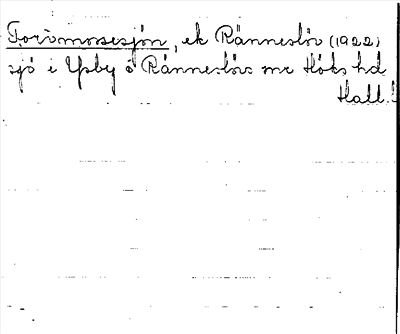 Torvmossesjön, ek Ränneslöv (1922)
sjö i Ysby o Ränneslövs snr Höks hd
Hall.